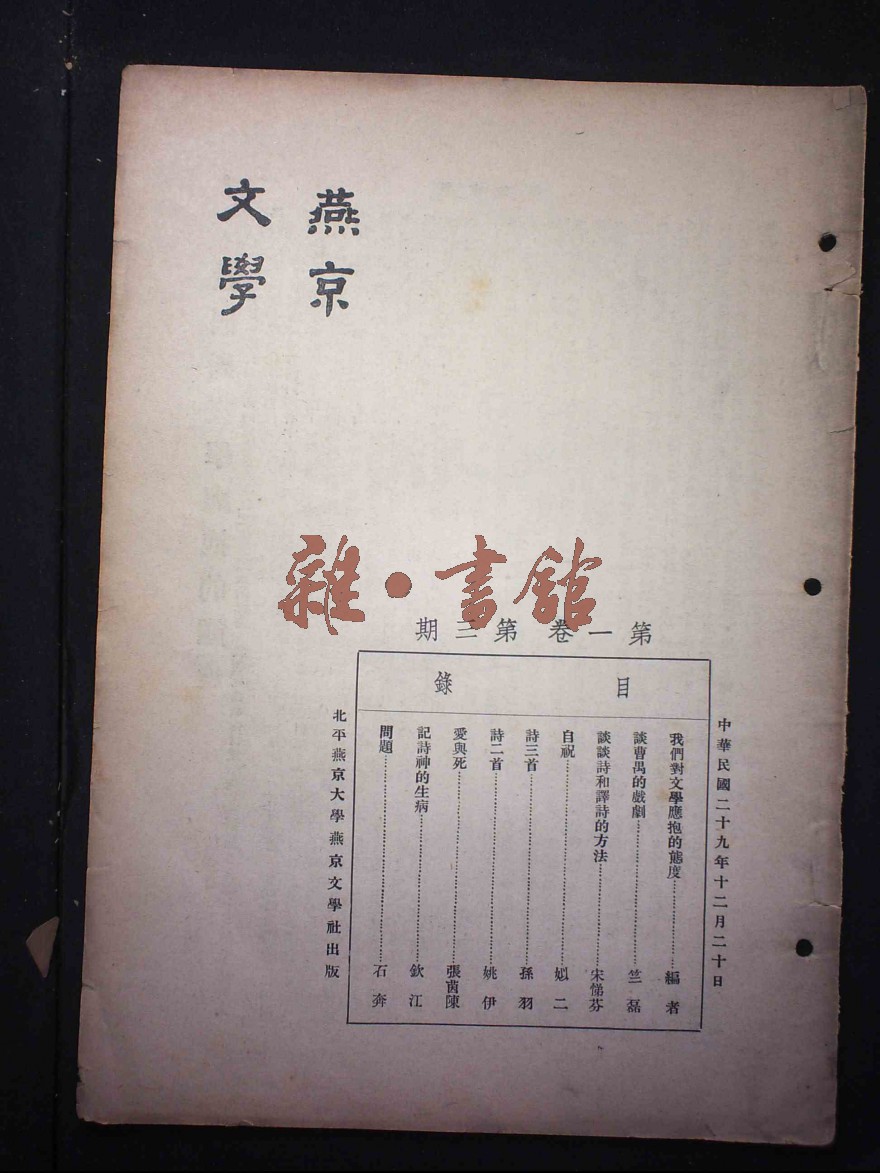 燕京
文學
雜·書館
第一卷 第三期
中華民國二十九年十二月二十日
目錄
我們對文學應抱的態度……編者
談曹禺的戲劇……竺磊
談談詩和譯詩的方法……宋悌芬
自祝……姒二
詩三首……孫羽
詩二首……姚伊
愛與死……張茵陳
記詩神的生病……欽江
問題……石奔
北平燕京大學燕京文學社出版